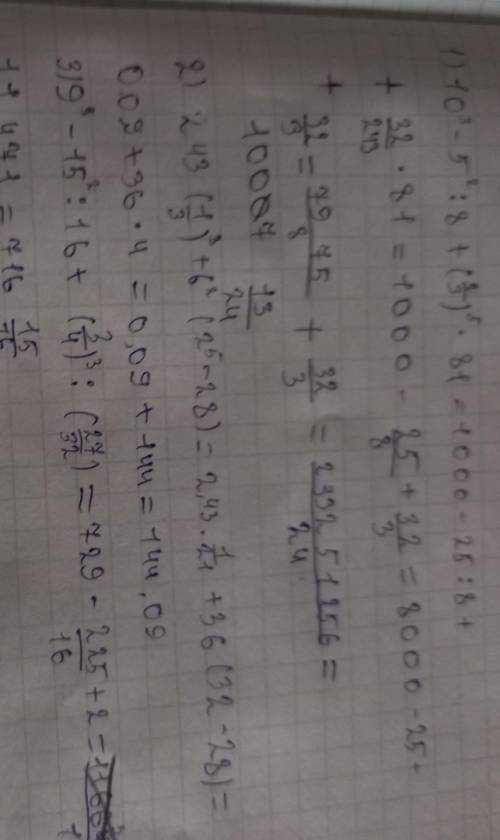 1) 10³ - 5² : 8 + (2/3)⁵ · 81 = 1000 - 25 : 8 +
+ 32/243 · 81 = 1000 - 25/8 + 32/3 = 8000 - 25 +
+ 32/3 = 7975/8 + 32/3 = 23925 + 256/24 =
1000 7 13/24
2) 2 43 (1/3)³ + 6² (2⁵ - 28) = 2,43 · 1/27 + 36 (32 - 28) =
0,09 + 36 · 4 = 0,09 + 144 = 144,09
3) 9³ - 15² : 16 + (3/4)³ : (27/32) = 729 - 225/16 + 2 =
11471 = 716 15/16